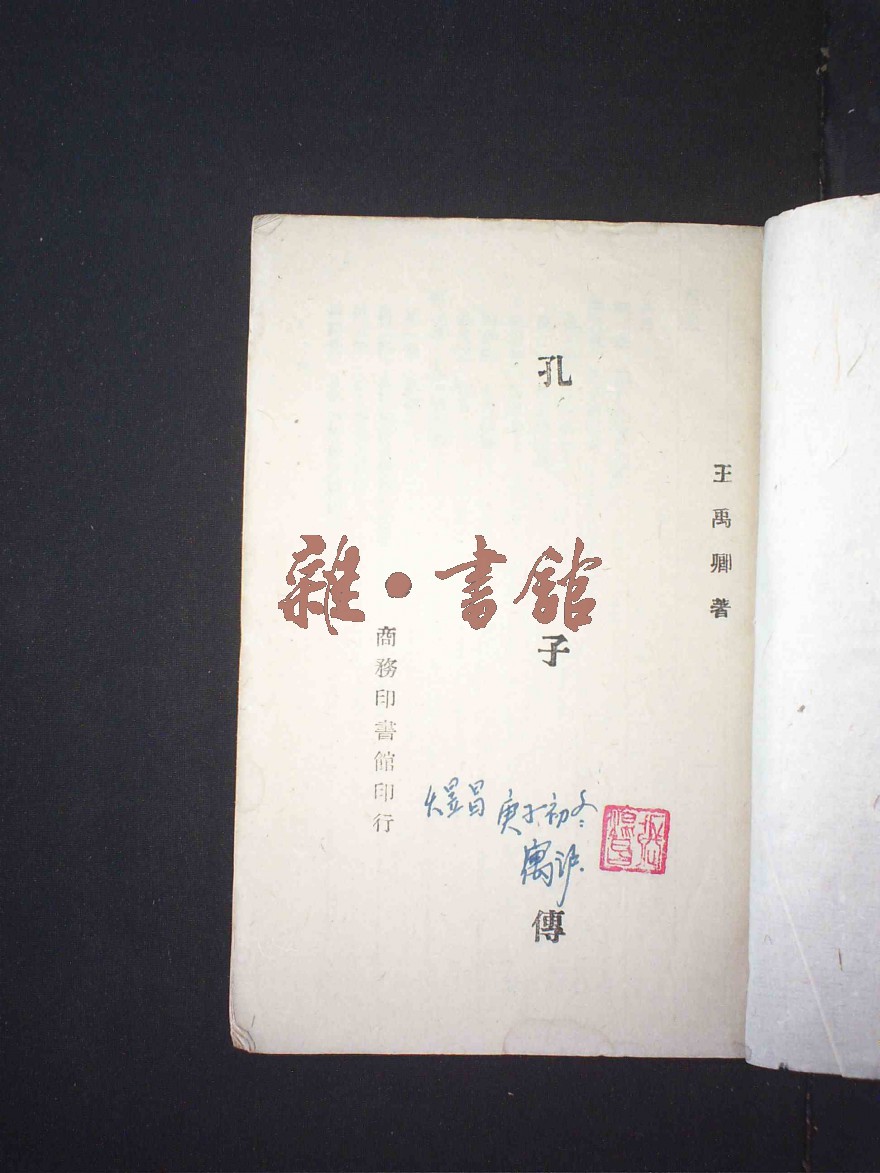 王禹卿著
孔子傳
商務印書館印行
雜·書館
庚子初冬
寓滬